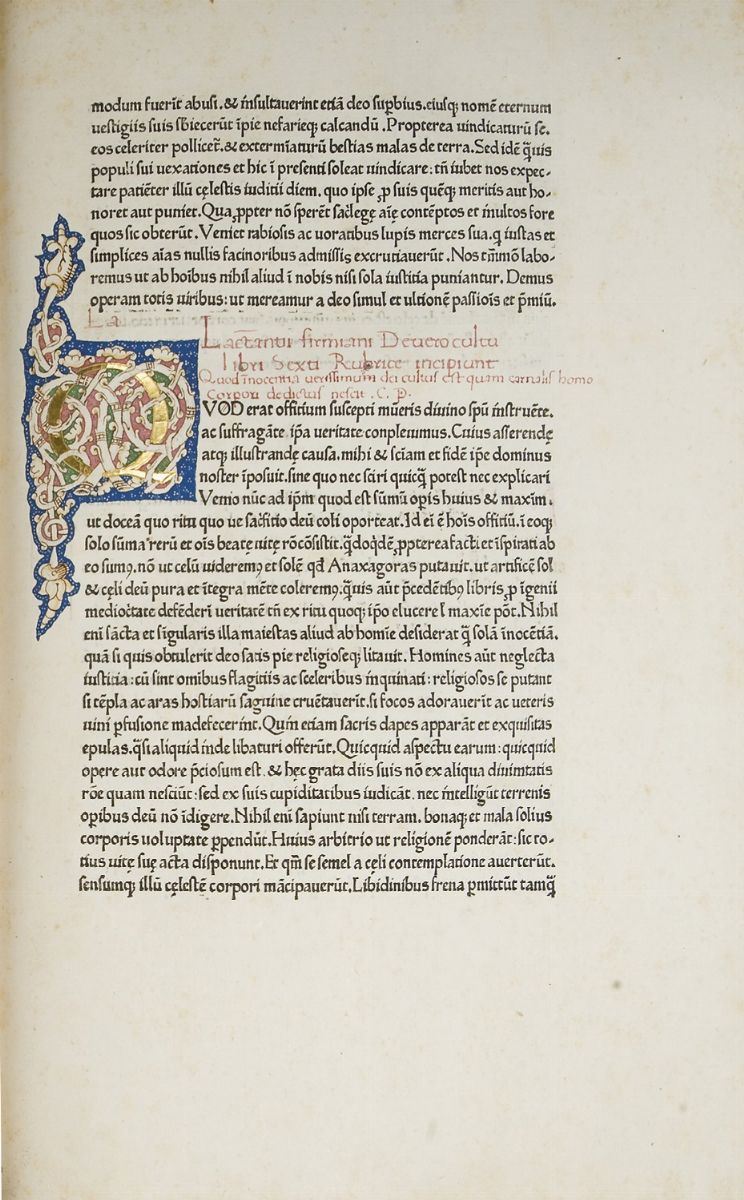 modum fuerīt abusi. & īnsultauerint etiā deo suꝑbius. eiusqꝫ nomē eternum
uestigiis suis sƀiecerūt īpie nefarieqꝫ calcandū. Propterea uindicaturū se.
eos celeriter pollicet̄. & extermīaturū bestias malas de terra. Sed idē ꝙuis
populi sui uexationes et hic ī presenti soleat uindicare: tn̄ iubet nos expec-
tare patiēter illū cęlestis iuditii diem. quo ipse ꝓ suis quēqꝫ meritis aut ho-
noret aut puniet. Qua ꝓpter nō sperēt sac̓legę aīę contēptos et īnultos fore
quos sic obterūt. Veniet rabiosis ac uoratibus lupis merces sua. q̄ iustas et
simplices aīas nullis facinoribus admissis excrutiauerūt. Nos tm̄mō labo-
remus ut ab hoībus nihil aliud ī nobis nisi sola iustitia puniantur. Demus
operam totis uiribus: ut mereamur a deo simul et ultionē passiōis et p̄miū.
La
Lactantii firmiani De uero cultu
libri Sexti Rubrice incipiunt
Quod īnocentia uerissimum dei cultus est quam carnalis homo
Corpori deditus nescit . C. P.
QVOD erat offitium suscepti mūeris diuino spū īnstruēte.
ac suffragāte īpa ueritate conpleuimus. Cuius asserendę
atqꝫ illustrandę causa. mihi & sciam et fidē ip̄e dominus
noster īposuit. sine quo nec sciri quicq̄ potest nec explicari
Venio nūc ad ip̄m quod est sūmū oꝑis huius & maxim.
ut doceā quo ritu quo ue sac̓fitio deū coli oporteat. Id eī ē hoīs offitiū. ī eoqꝫ
solo sūma rerū et oīs beatę uitę rō cōsistit. q̄doq̓dē ꝓpterea facti et īspirati ab
eo sumꝰ. nō ut celū uideremꝰ et solē qđ Anaxagoras putauit. ut artificē sol
& cęli deū pura et ītegra mēte coleremꝰ. ꝙuis aūt p̄cedētibꝰ libris ꝓ īgenii
medioc̓tate defēderī ueritatē tn̄ ex ritu quoqꝫ īpo elucere ł maxīe pōt. Nihil
enī sācta et sīgularis illa maiestas aliud ab homīe desiderat q̄ solā īnocētiā.
quā si quis obtulerit deo satis pie religioseqꝫ litauit. Homines aūt neglecta
iustitia: cū sint omībus flagitiis ac sceleribus īnquinati: religiosos se putant
si tēpla ac aras hostiarū saguine cruētauerīt. si focos adorauerīt ac ueteris
uini ꝑfusione madefecerīnt. Quīn etiam sacris dapes apparāt et exquisitas
epulas. q̄si aliquid īnde libaturi offerūt. Quicquid aspectu earum: quicquid
opere aut odore p̄ciosum est. & hęc grata diis suis nō ex aliqua diuīnitatis
rōe quam nesciūt: sed ex suis cupiditatibus iudicāt. nec īntelligūt terrenis
oꝑibus deū nō īdigere. Nihil enī sapiunt nisi terram. bonaqꝫ et mala solius
corporis uoluptate ꝑpendūt. Huius arbitrio ut religionē ponderāt: sic to-
tius uitę suę acta disponunt. Et qm̄ se semel a cęli contemplatione auerterūt.
sensumqꝫ illū cęlestē corpori mācipauerūt. Libidinibus frena ꝑmittūt tamq̄